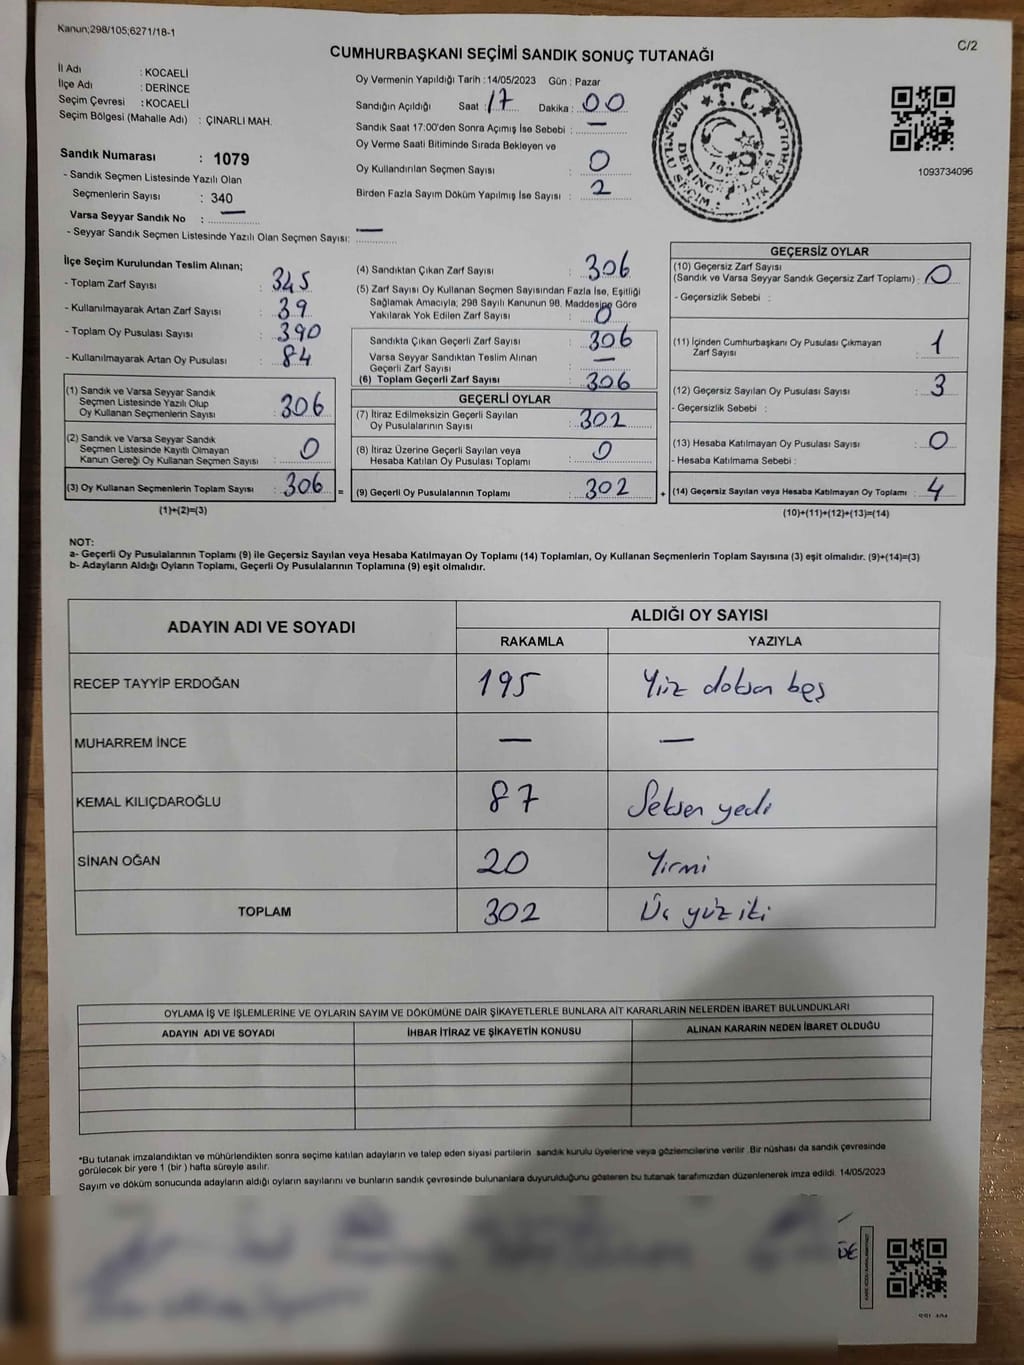 Kanun;298/105;6271/18-1
C/2
CUMHURBAŞKANI SEÇİMİ SANDIK SONUÇ TUTANAĞI
İl Adı : KOCAELİ
İlçe Adı : DERİNCE
Seçim Çevresi : KOCAELİ
Seçim Bölgesi (Mahalle Adı) : ÇINARLI MAH.
Sandık Numarası : 1079
- Sandık Seçmen Listesinde Yazılı Olan
Seçmenlerin Sayısı : 340
Varsa Seyyar Sandık No : —
- Seyyar Sandık Seçmen Listesinde Yazılı Olan Seçmen Sayısı: —
Oy Vermenin Yapıldığı Tarih : 14/05/2023 Gün : Pazar
Sandığın Açıldığı Saat : 17 Dakika : 00
Sandık Saat 17:00'den Sonra Açımış İse Sebebi : —
Oy Verme Saati Bitiminde Sırada Bekleyen ve
Oy Kullandırılan Seçmen Sayısı : 0
Birden Fazla Sayım Döküm Yapılmış İse Sayısı : 2
T.C.
1093734096
İlçe Seçim Kurulundan Teslim Alınan;
- Toplam Zarf Sayısı : 345
- Kullanılmayarak Artan Zarf Sayısı : 39
- Toplam Oy Pusulası Sayısı : 390
- Kullanılmayarak Artan Oy Pusulası : 84
(1) Sandık ve Varsa Seyyar Sandık
Seçmen Listesinde Yazılı Olup
Oy Kullanan Seçmenlerin Sayısı : 306
(2) Sandık ve Varsa Seyyar Sandık
Seçmen Listesinde Kayıtlı Olmayan
Kanun Gereği Oy Kullanan Seçmen Sayısı : 0
(3) Oy Kullanan Seçmenlerin Toplam Sayısı : 306 =
(1)+(2)=(3)
(4) Sandıktan Çıkan Zarf Sayısı : 306
(5) Zarf Sayısı Oy Kullanan Seçmen Sayısından Fazla İse, Eşitliği
Sağlamak Amacıyla; 298 Sayılı Kanunun 98. Maddesine Göre
Yakılarak Yok Edilen Zarf Sayısı : 0
Sandıkta Çıkan Geçerli Zarf Sayısı : 306
Varsa Seyyar Sandıktan Teslim Alınan
Geçerli Zarf Sayısı : —
(6) Toplam Geçerli Zarf Sayısı : 306
GEÇERLİ OYLAR
(7) İtiraz Edilmeksizin Geçerli Sayılan
Oy Pusulalarının Sayısı : 302
(8) İtiraz Üzerine Geçerli Sayılan veya
Hesaba Katılan Oy Pusulası Toplamı : 0
(9) Geçerli Oy Pusulalarının Toplamı : 302 +
GEÇERSİZ OYLAR
(10) Geçersiz Zarf Sayısı
(Sandık ve Varsa Seyyar Sandık Geçersiz Zarf Toplamı) : 0
- Geçersizlik Sebebi :
(11) İçinden Cumhurbaşkanı Oy Pusulası Çıkmayan
Zarf Sayısı : 1
(12) Geçersiz Sayılan Oy Pusulası Sayısı : 3
- Geçersizlik Sebebi :
(13) Hesaba Katılmayan Oy Pusulası Sayısı : 0
- Hesaba Katılmama Sebebi :
(14) Geçersiz Sayılan veya Hesaba Katılmayan Oy Toplamı : 4
(10)+(11)+(12)+(13)=(14)
NOT:
a- Geçerli Oy Pusulalarının Toplamı (9) ile Geçersiz Sayılan veya Hesaba Katılmayan Oy Toplamı (14) Toplamları, Oy Kullanan Seçmenlerin Toplam Sayısına (3) eşit olmalıdır. (9)+(14)=(3)
b- Adayların Aldığı Oyların Toplamı, Geçerli Oy Pusulalarının Toplamına (9) eşit olmalıdır.
ADAYIN ADI VE SOYADI ALDIĞI OY SAYISI
RAKAMLA YAZIYLA
RECEP TAYYİP ERDOĞAN 195 Yüz doksan beş
MUHARREM İNCE — —
KEMAL KILIÇDAROĞLU 87 Seksen yedi
SİNAN OĞAN 20 Yirmi
TOPLAM 302 Üç yüz iki
OYLAMA İŞ VE İŞLEMLERİNE VE OYLARIN SAYIM VE DÖKÜMÜNE DAİR ŞİKAYETLERLE BUNLARA AİT KARARLARIN NELERDEN İBARET BULUNDUKLARI
ADAYIN ADI VE SOYADI İHBAR İTİRAZ VE ŞİKAYETİN KONUSU ALINAN KARARIN NEDEN İBARET OLDUĞU
*Bu tutanak imzalandıktan ve mühürlendikten sonra seçime katılan adayların ve talep eden siyasi partilerin sandık kurulu üyelerine veya gözlemcilerine verilir. Bir nüshası da sandık çevresinde
görülecek bir yere 1 (bir) hafta süreyle asılır.
Sayım ve döküm sonucunda adayların aldığı oyların sayılarını ve bunların sandık çevresinde bulunanlara duyurulduğunu gösteren bu tutanak tarafımızdan düzenlenerek imza edildi. 14/05/2023